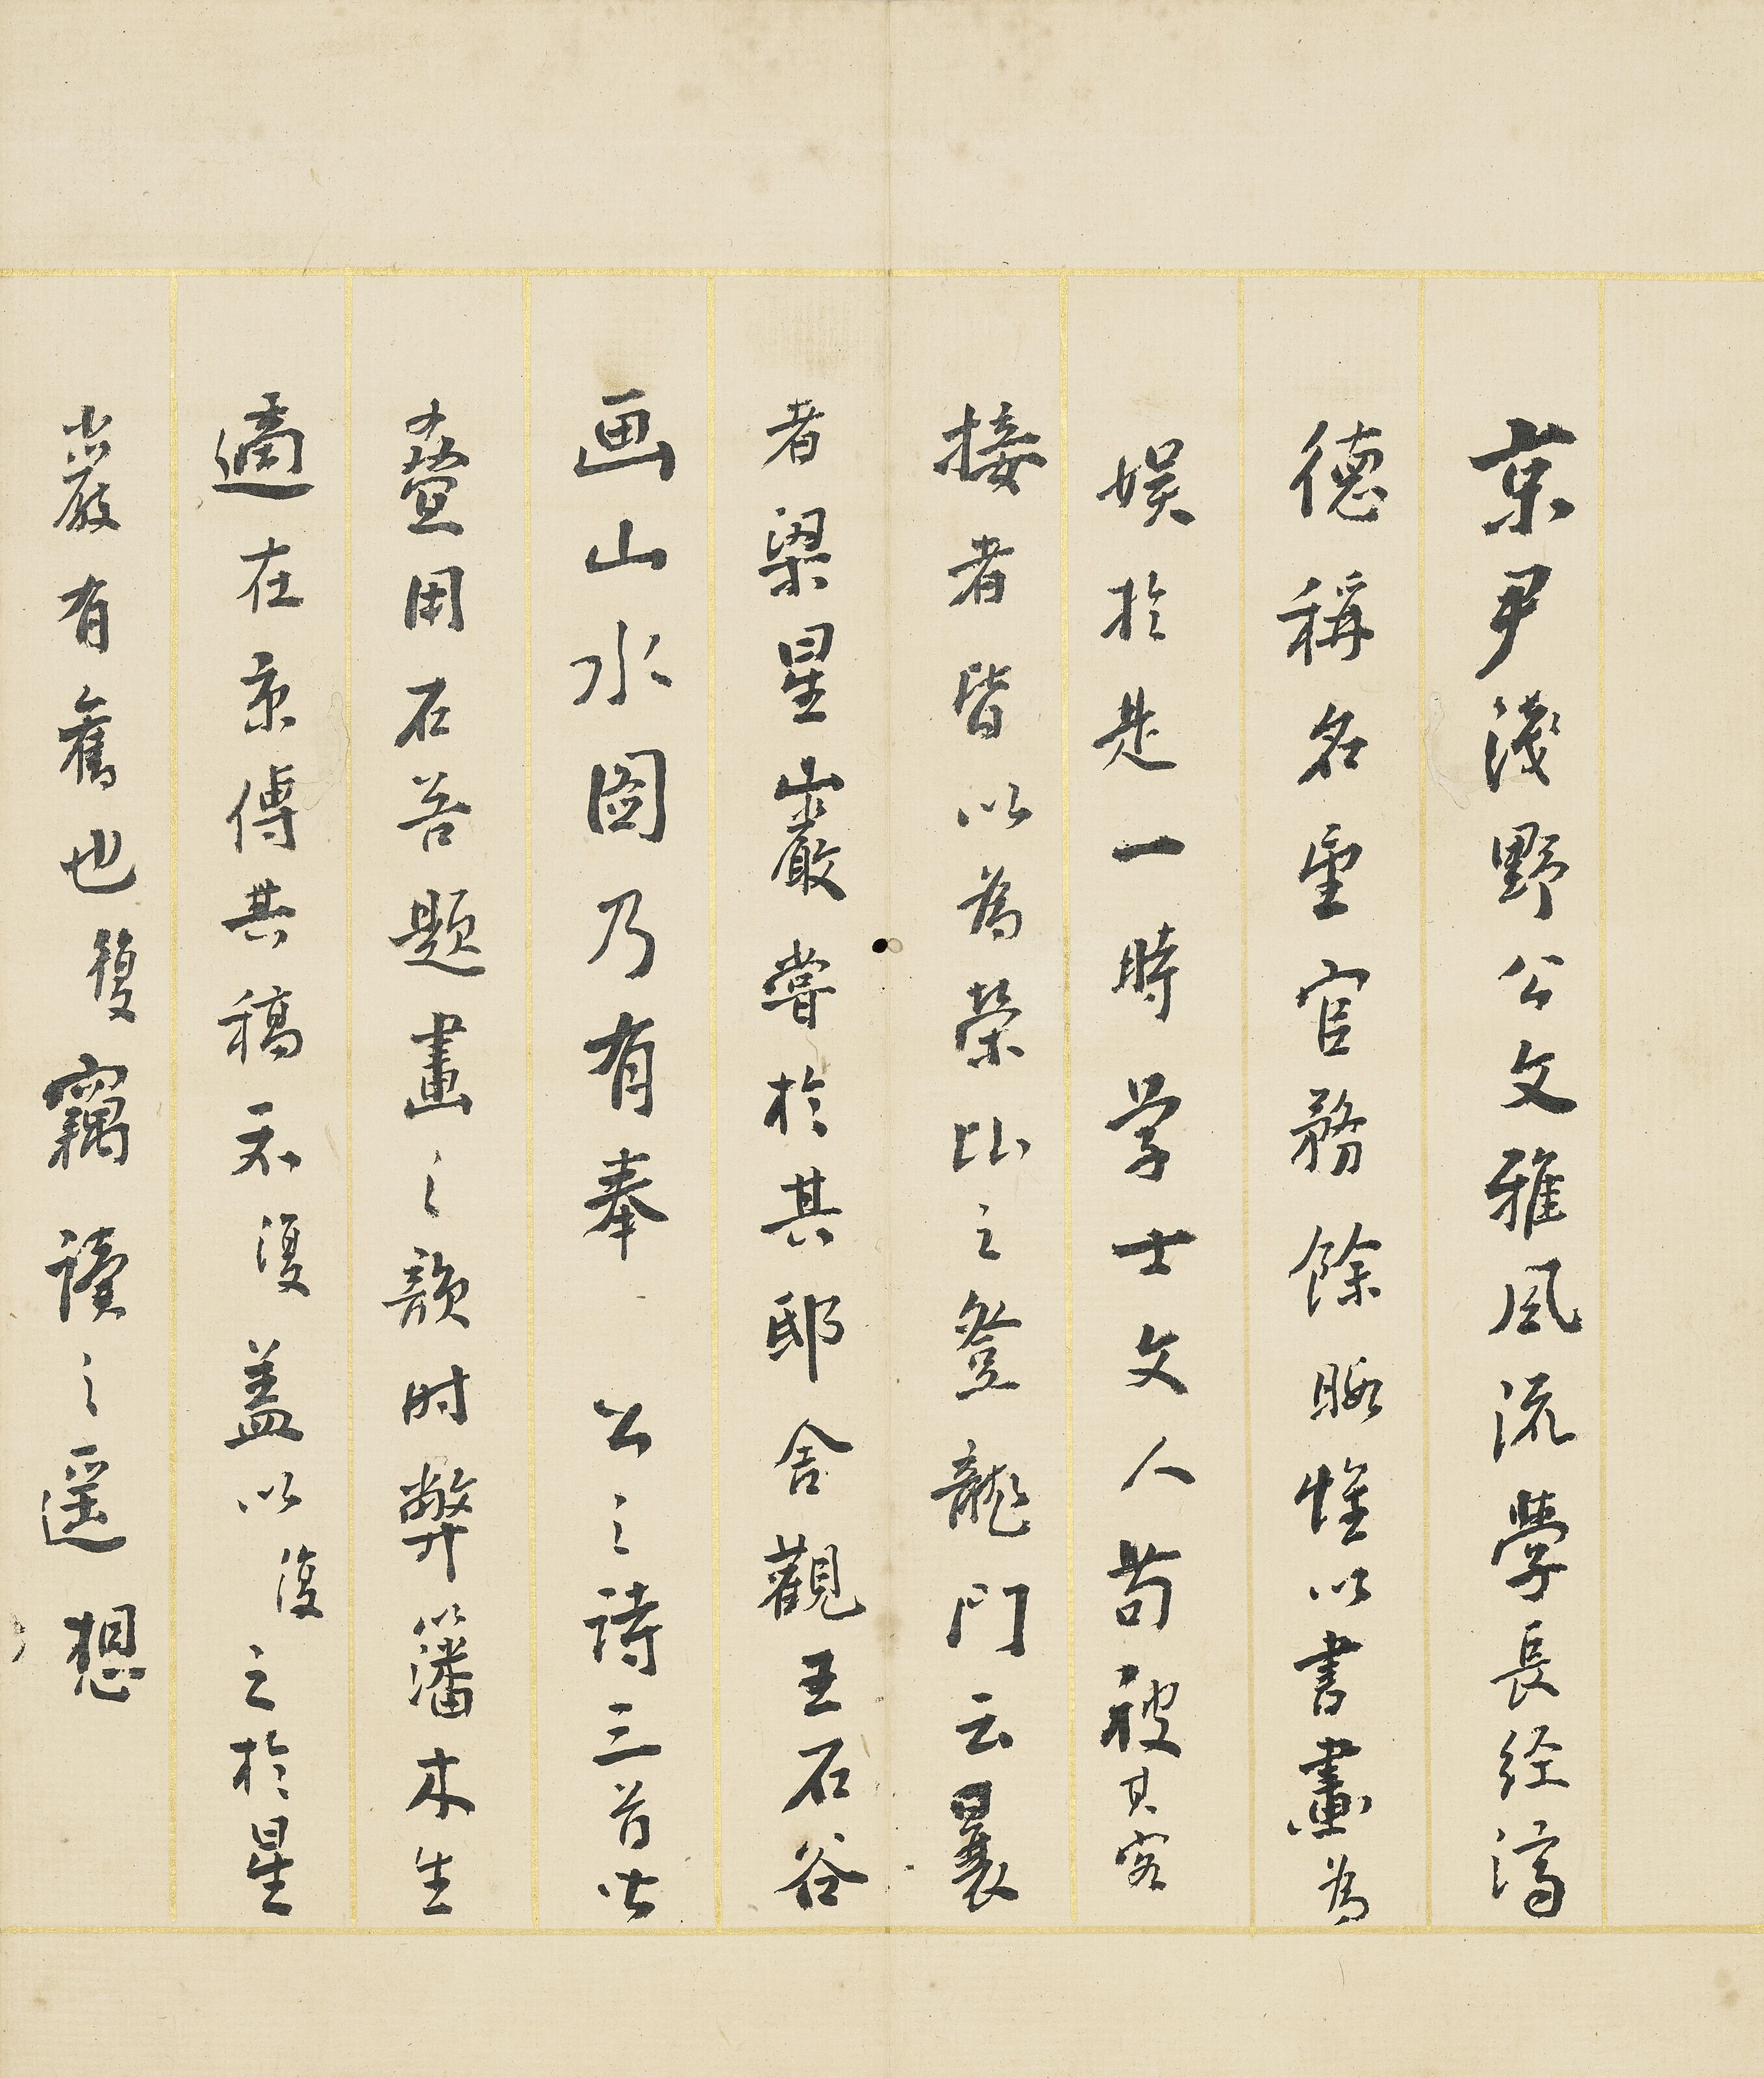 京尹淺野公文雅風流學長経濟
德稱名重官務餘暇惟以書畫為
娯於是一時学士文人苟被其容
接者皆以為榮比之登龍門云曩
者梁星巖嘗於其邸舍觀王石谷
画山水圖乃有奉　公之詩三首皆
疊用石谷題畫之韻时弊藩木生
適在京傳其稿示復蓋以復之於星
巖有舊也復竊讀之遥想